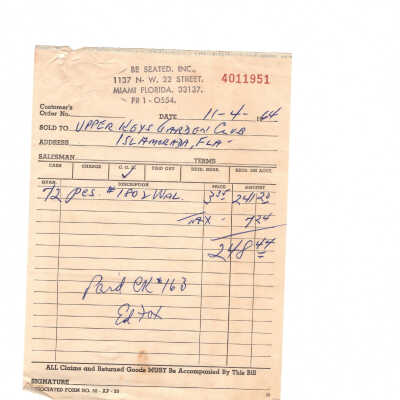 BE SEATED, INC.
1137 N. W. 22 STREET.
MIAMI FLORIDA. 33137.
FR 1 - 0554.
4011951
Customer's
Order No. DATE 11-4-64
SOLD TO UPPER KEYS GARDEN CLUB
ADDRESS ISLAMORADA, FLA-
SALESMAN TERMS
CASH CHARGE C. O. D. PAID OUT RETD. MDSE. RECD. ON ACCT.
✓
QUAN. DESCRIPTION PRICE AMOUNT
72 pcs #1802 WAL. 3.35 241 20
TAX - 7 24
248 44
Paid CK #163
Ed Fox
ALL Claims and Returned Goods MUST Be Accompanied By This Bill
SIGNATURE